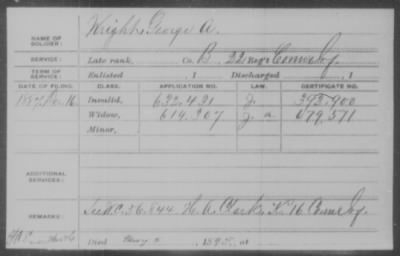 NAME OF SOLDIER: Wright, George A.
SERVICE: Late rank, Co. B, 22 Reg't Conn Inf.
TERM OF SERVICE: Enlisted , 1 Discharged , 1
DATE OF FILING. CLASS. APPLICATION NO. LAW. CERTIFICATE NO.
1887, 16 Invalid, 632.421 J. 393.900
Widow, 614.307 J. a 479.571
Minor,
ADDITIONAL SERVICES:
REMARKS: See 36.844 H. A. Clark, K 16 Conn Inf.
Died 189 , at